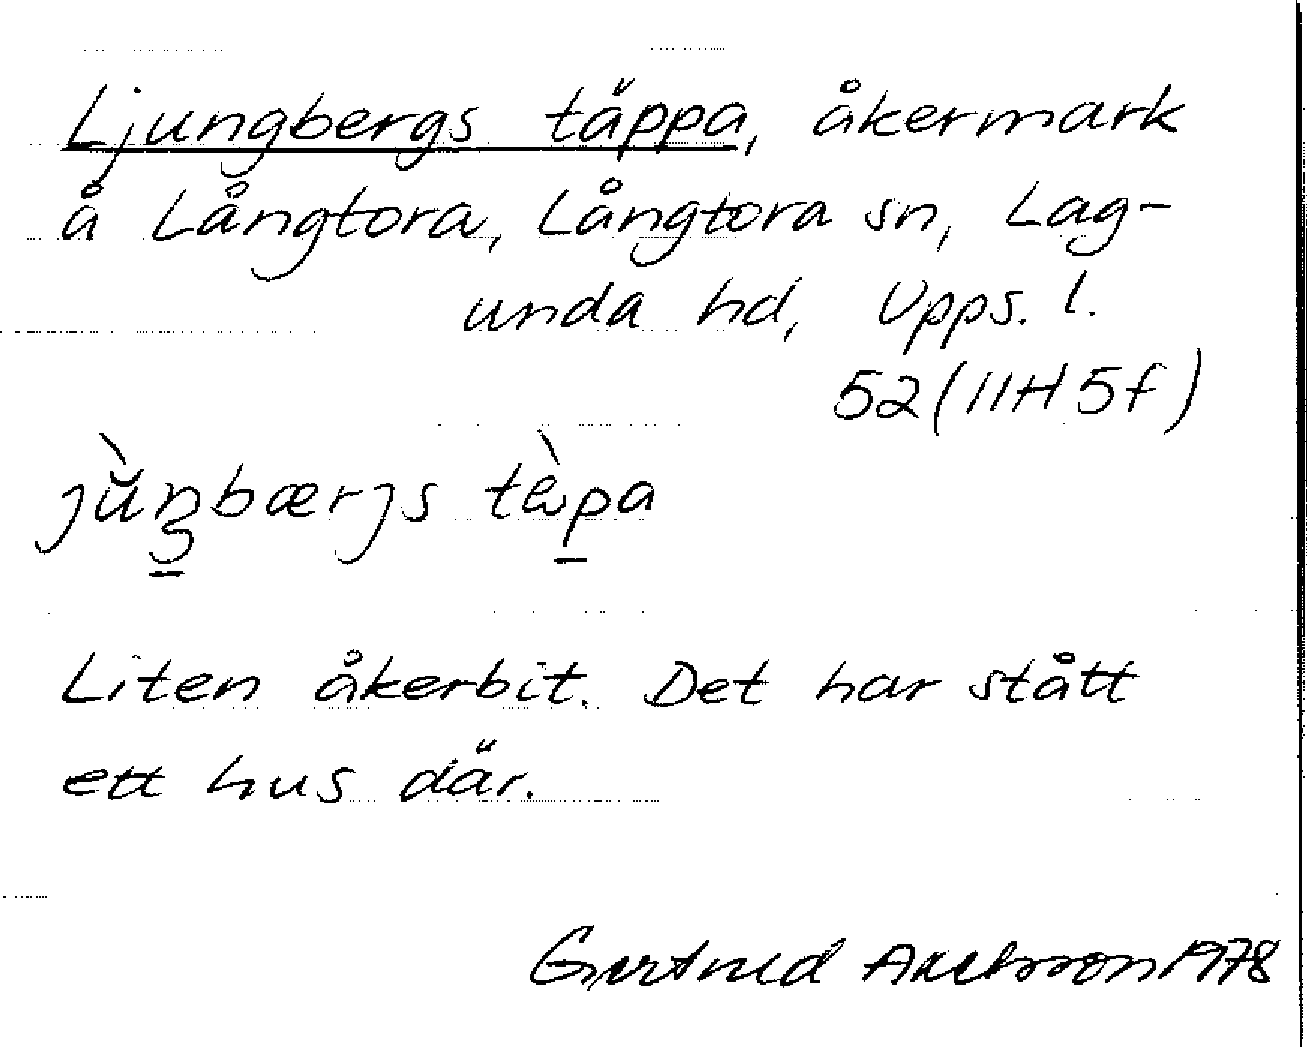 Ljungbergs täppa, åkermark
å Långtora, Långtora sn, Lag-
unda hd, Upps. l.
52 (11H 5f)
jùŋbærjs tὲpa
Liten åkerbit. Det har stått
ett hus där.
Gertrud Axelsson 1978